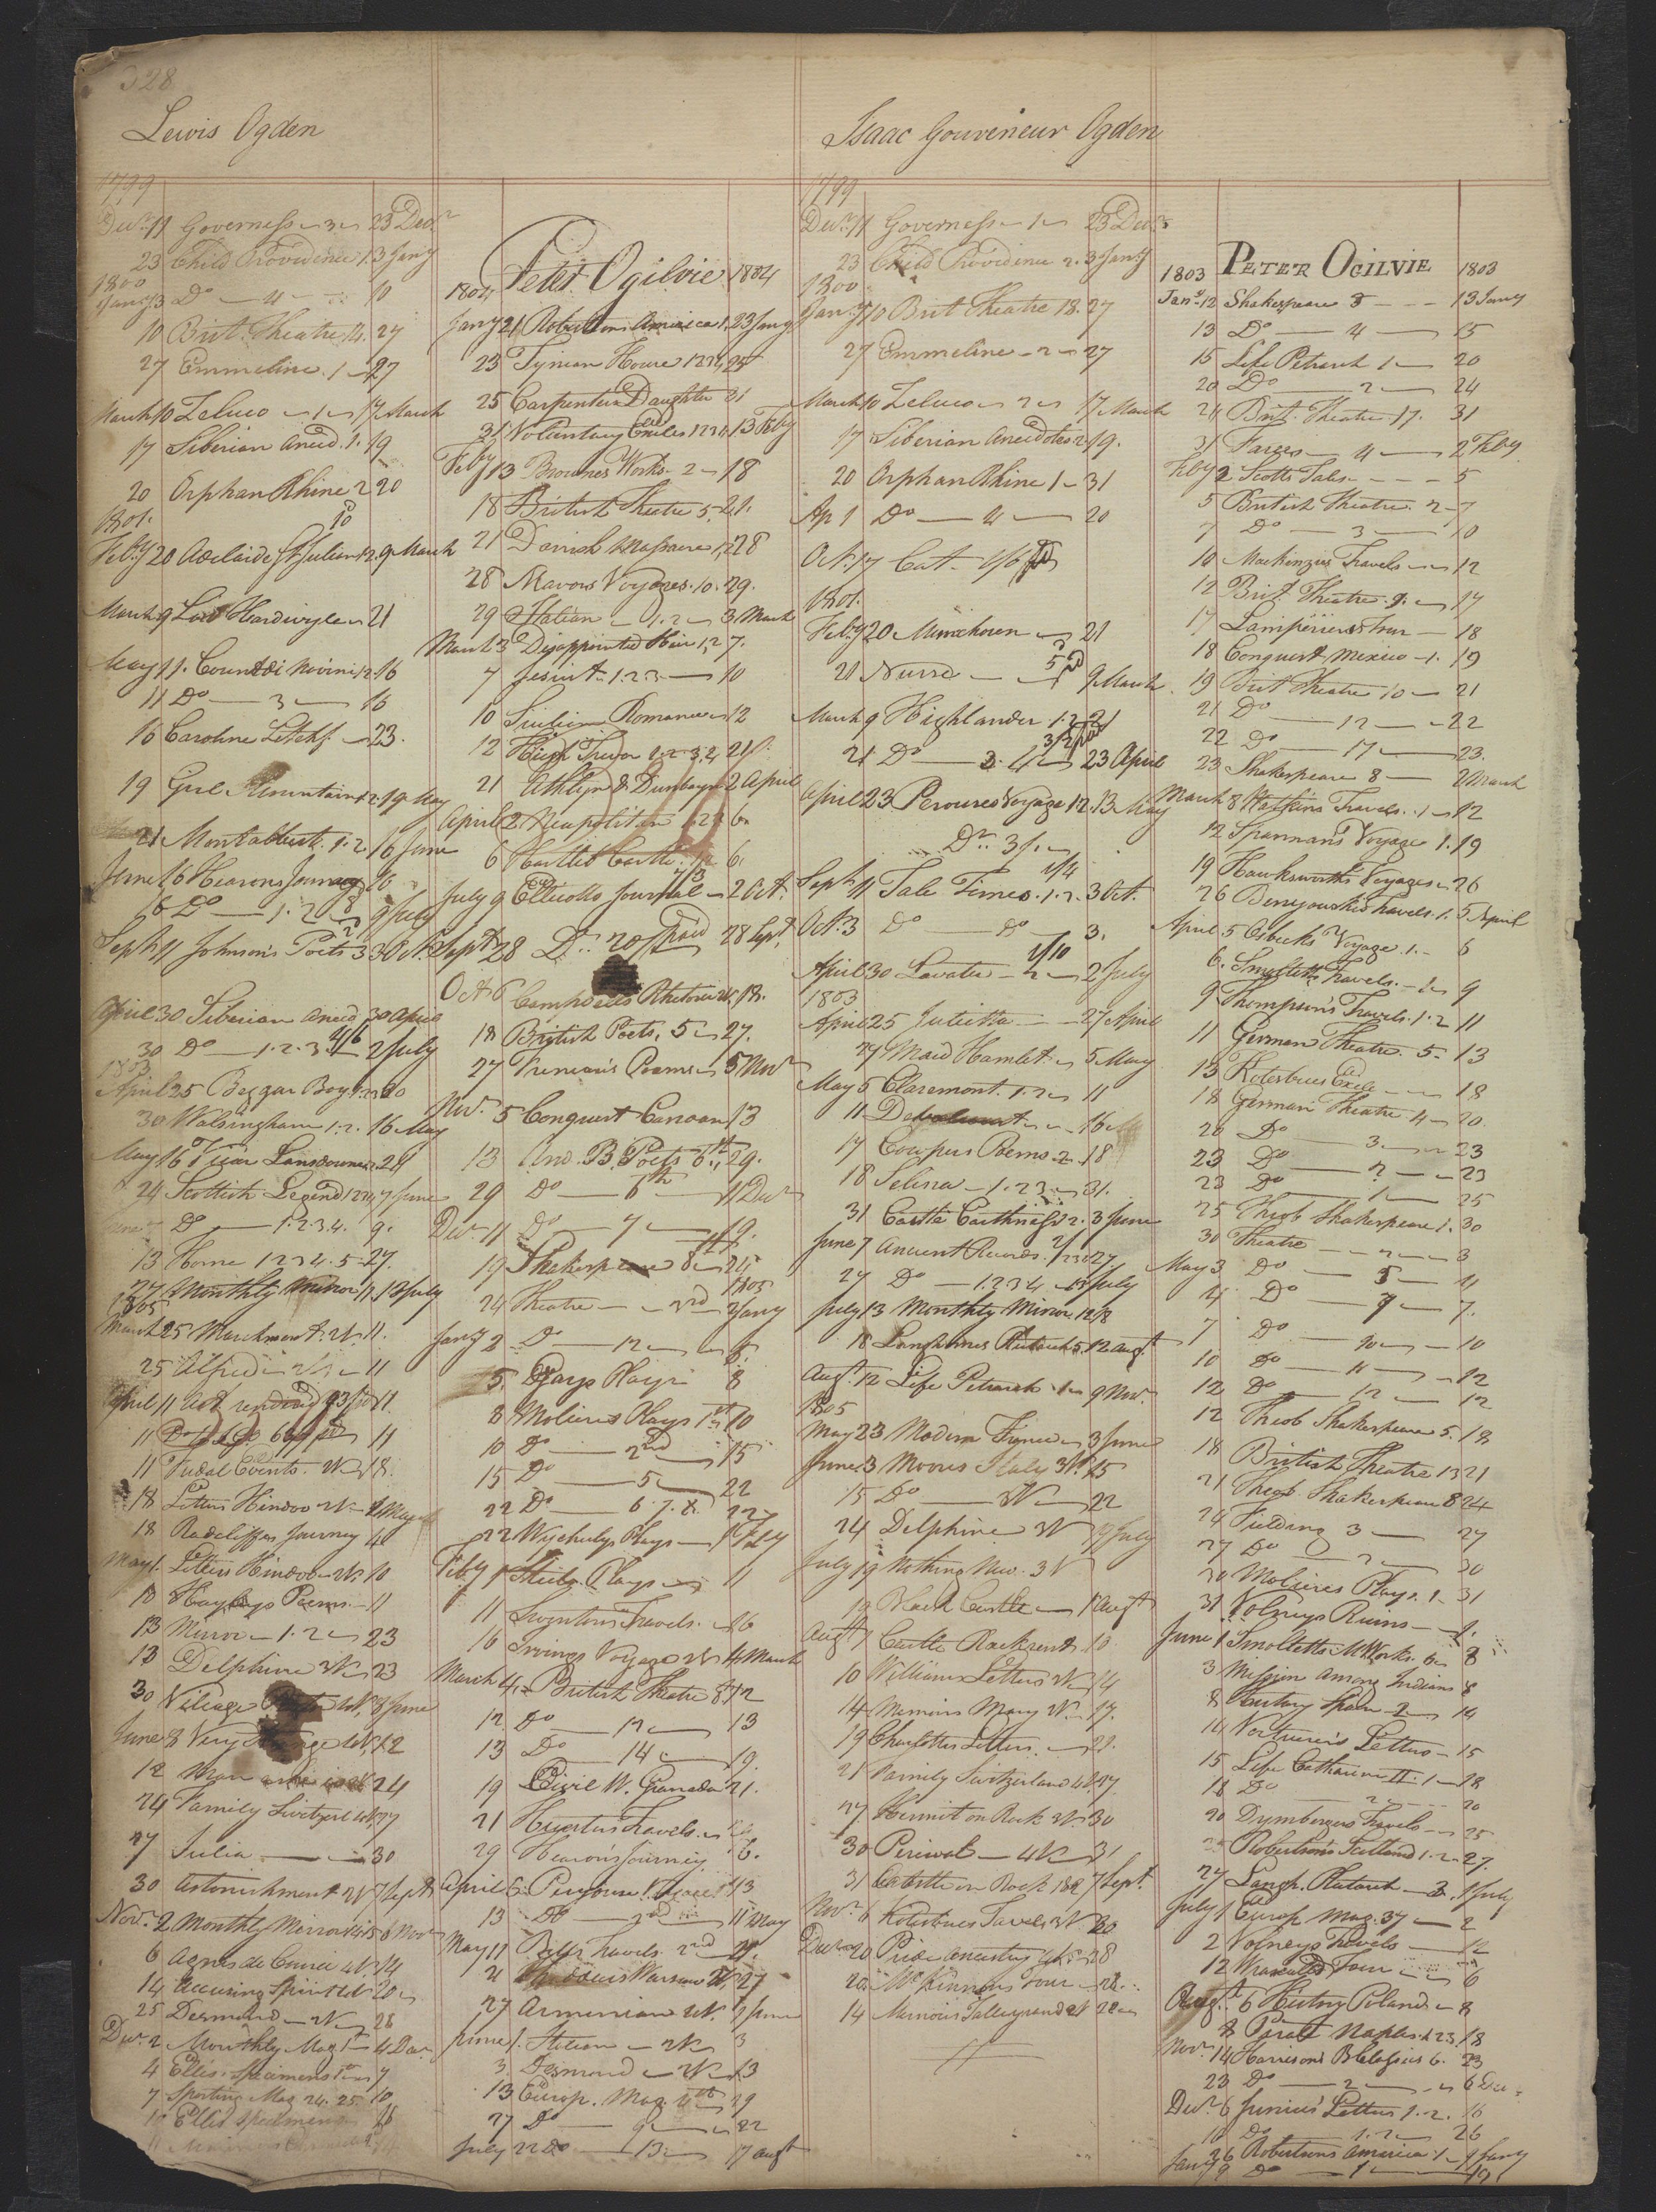 328
Lewis Ogden
1799
Decr. 11 Governess - 3 - 23 Decr
23 Child Providence 1. 3 Jany
1800
Jany 3 Do - 4 - 10
10 Brit. Theatre 14. 27
27 Emmeline. 1 - 27
March 10 Zeluco - 1 - 17 March
17 Siberian Anecd. 1. 19
20 Orphan Rhine 2 20
1801.
Feby 20 Adelaide St Julian 1.2. 9 March
March 9 Lord Hardivyle - 21
May 11. Countdi Novini 1.2. 16
11 Do - 3 - 16
16 Caroline Litchf. - 23.
19 Girl Mountain 1.2. 19 May
21 Montalbert. 1.2. 16 June
June 16 Hearons Journey 16
16 Do - 1.2 - 9 July
Septr 11 Johnson's Poets 3 3 Oct.
April 30 Siberian Anecd. 30 April
30 Do - 1.2.3. 4/6 2 July
1803
April 25 Beggar Boy 1.2.3. 30
30 Walsingham 1.2. 16 May
May 16 Vicar Lansdowne 1.2. 24
24 Scottish Legend 1.2.3.4 7 June
Do - 1.2.3.4. 9.
13 Horne 1 2 3 4. 5. 27.
27 Monthly Mirror 11. 13 July
1805
March 25 Marchmont. 2V. 11.
25 Alfred - 2V. - 11
April 11 Act rendered 23/ pd 11.
11 Do 11
11 Fudal Events. 2V. 18.
18 Letters Hindoo 2V. 1 May
18 Radcliffes Journey 4
May 1. Letters Hindoo 2V. 10
10 Hayleys Poems. - 11
13 Mirror - 1.2 - 23
13 Delphine 2V. 23
30 Village 2V. 8 June
June 8 Very Strange 2V. 12
12 Man 24
24 Family Switzerl 4V. 27
27 Julia - 30
30 Astonishment 2V. 7 Sept
Novr. 2 Monthly Mirror 14.15. 6 Novr
6 Agnes de Courci 4V. 14
14 Accusing Spirit 4V. 20
25 Desmond - 2V. 28
Decr. 2. Monthly Mag 1st 4 Decr
4 Ellis. Specimens 1st 7
7 Sporting Mag 24. 25. 10
10 Ellis Specimens 16
Peter Ogilvie 1804
1804
Jany 21 Robertsons America 1. 23 Jany
23 Tynian House 1 2 3 4 25
25 Carpenters Daughter 31
31 Voluntary Exiles 1 2 3 4 13 Feby
Feby 13 Brownes Works - 2 - 18
18 British Theatre 5. 21.
21 Danish Massacre 1,2 28
28 Mavors Voyages. 10. 29.
29 Italian - 1.2 - 3 March
March 3 Disappointed Heir 1,2 7.
7 Jesuit - 1.2 3 - 10
10 Sicilian Romance 12
12 Hugh Trevor 1.2.3,4 21
21 Athlyn & Dunbayn 2 April
April 2 Neapolitan 1.2.3 6.
6 Hartleb Castle. 1.2 6.
July 9 Ellicotts Journal - 2 Oct.
Sept 28 Do 20/ paid 28 Sept.
Oct 6 Campbells Rhetoric 2V. 18.
18 British Poets. 5 - 27.
27 Freneau's Poems - 5 Novr
Nov. 5 Conquest Canaan 13
13 And. B. Poets 5th 29.
29 Do - 6th - 11 Decr
Decr. 11 Do - 7 - 19.
19 Shakespeare 8 - 24
1805
24 Theatre - 2nd 2 Jany
Jany 2 Do - 12 - 5.
5. Gays Plays 8
8 Molieres Plays 1st 10
10 Do - 2nd 15
15 Do - 5 - 22
22 Do - 6. 7. 8. 22
22 Wycherlys Plays - 1 Feby
Feby 1 Steele Plays - 11
11 Swintons Travels. - 16
16 Irvings Voyage 2V. 4 March
March 4. British Theatre 8th 12
12. Do - 12 - 13
13 Do - 14 - 19.
19 Civil W. Granada 21.
21 Hunters Travels. -
29 Hearon's Journey 6.
April 6. Peyrouse Voyage 1 13
13 Do - 2nd - 11 May
May 11 Bells Travels. 2nd 21.
21 Thaddeus Warsaw 2V. 27
27 Armenian 2V. 1 June
June 1. Stolien - 2V. 3
3. Desmond - 2V. 13
13 Europ. Mag. 4th 19
27 Do - 9 - 22
July 22 Do - 13 - 17 augt
Isaac Gouverneur Ogden
1799
Decr. 11 Governess - 1 - 23 Decr.
23 Child Providence 2. 3 Jany
1800
Jany 10 Brit Theatre 18. 27
27 Emmeline - 2 - 27
March 10 Zeluco - 2 - 17 March
17 Siberian Anecdotes 2 19.
20 Orphan Rhine 1 - 31
Ap 1 Do - 4 - 20
Oct. 17 Cat. 1/6 pd
1801.
Feby 20 Munchosen - 21
21 Nurse - 9 March
March 9 Highlander 1.2 21
21 Do - 3. 4 - 23 April
April 23 Perouses Voyage 1.2. 13 May
Do 3/.
Septr 11 Tale Times. 1.2. 3 Oct.
Oct. 3 Do - Do - 3.
April 30 Lavater - 2 - 2 July
1803
April 25 Julietta - 27 April
27 Maid Hamlet. - 5 May
May 5 Claremont. 1.2 - 11
11 Do - 16 M
17 Cowpers Poems. 2. 18
18 Selima - 1.2.3. - 31.
31 Castle Caithness 2. 3 June
June 7 Ancient Records. 1 2 3 4 27
27 Do - 1 2 3 4 - 13 July
July 13 Monthly Mirror 12 18
18 Langhornes Plutarch 5. 12 augt
Augt. 12 Life Petrarch. 1 - 9 Novr.
1805
May 23 Modern - 3 June
June 3 Moores Italy 3V. 15
15 Do - 3V - 22
24 Delphine 3V 19 July
July 19 Nothing New. 3V
19 Black Castle - 1 Augt
Augt 1 Castle Rackrent. 10
10 Williams Letters 2V. 14
14 Memoirs Mary 2V. 19.
19 Charlottes Letters. - 21.
21 Family Switzerland 4V. 27.
27 Hermit on Rock 2V. 30
30 Percival - 4V. 31
31 Castle on Rock 1&2 7 Sept.
Novr. 11 Kotzebues Travels 3V. 20
Decr 20 Pride Ancestry 4V. 28
20 McKinnons Tour - 28.
14 Memoirs Talleyrand 2V 22
PETER OGILVIE
1803 1803
Jany. 12 Shakespeare 3 - 13 Jany
13 Do - 4 - 15
15 Life Petrarch 1 - 20
20 Do - 2 - 24
24 Brit. Theatre 17. 31
31 Farces - 4 - 2 Feby
Feby 2 Scotts Tales - 5
5 British Theatre. 2 - 7
7 Do - 3 - 10
10 Mackenzies Travels - 12
12 Brit. Theatre. 9. - 17
17 Lamperiers Tour - 18
18 Conquest Mexico - 1. 19
19 Brit Theatre 10 - 21
21 Do - 12 - 22
22 Do - 17 - 23.
23 Shakespeare 8 - 2 March
March 8 Watkins Travels. 1 - 12
12 Sparrman's Voyage 1. 19
19 Hawksworths Voyages - 26
26 Benyouskis Travels. 1. 5 April
April 5 Osbecks Voyage. 1. - 6
6. Smolletts Travels. - 2 - 9
9 Thompson's Travels. 1. 2 11
11 German Theatre. 5. 13
13 Kotzebues Exile - 18
18 German Theatre 4 - 20.
20 Do - 3. - 23
23 Do - 2 - 23
23 Do - 1 - 25
25 Theob Shakespeare 1. 30
30 Theatre - 2 - 3
May 3 Do - 5 - 4
4 Do - 7 - 7.
7 Do - 10 - 10
10 Do - 11 - 12
12 Do - 12 - 12
12 Theob Shakespeare 5. 18
18 British Theatre 13 21
21 Theob. Shakespeare 8 24
24 Fielding 3 - 27
27 Do - 2 - 30
30 Molieres Plays. 1 - 31
31 Volneys Ruins - 1.
June 1 Smolletts M Works. 6 - 3
3 Mission among Indians 8
8 History Spain - 2 - 14
14 Vortuerin's Letters - 15
15 Life Catharine II. 1 - 18
18 Do - 2 - 20
20 Dymbergers Travels - 25
25 Robertsons Scotland 1.2 - 27.
27 Langh. Plutarch - 3. 1 July
July 1 Europ Mag. 37 - 2
2 Volneys Travels - 12
12 Wraxalls Tour - 6
Augt. 6 History Poland - 8
8 Naples. 1 2 3 18
Novr. 14 Harrisons B Classics 6. 23
23 Do - 2 - 6 Dec.
Decr. 6 Junius' Letters 1.2. 16
16 Do - 1.2 - 26
26 Robertsons America 1 - 9 Jany
Jany 9 Do - 1 - 19